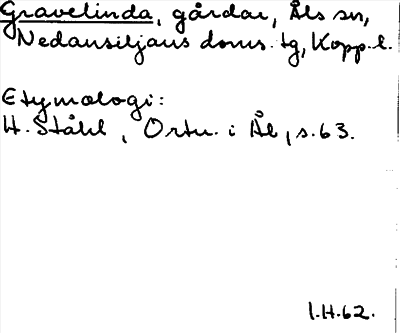 Gravelinda, gårdar, Åls sn,
Nedansiljans doms.tg, Kopp.l.
Etymologi:
H. Ståhl, Ortn. i Ål, s.63.
I.H.62.